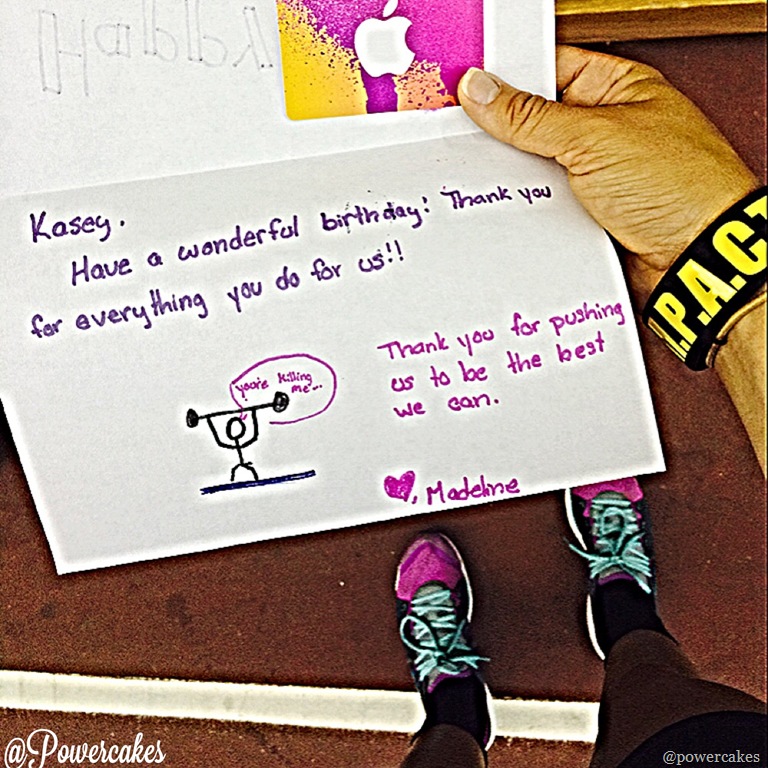 Happy
Kasey.
Have a wonderful birthday! Thank you
for everything you do for us!!
you're killing
me...
Thank you for pushing
us to be the best
we can.
, Madeline
.P.A.C.T
@Powercakes
@powercakes